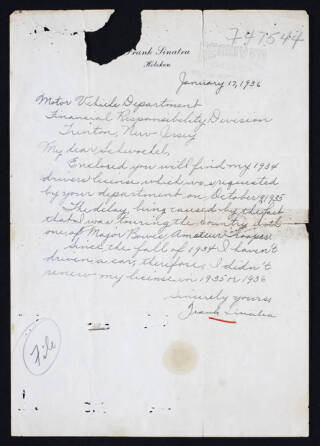 747544
Frank Sinatra
Hoboken
January 17, 1936
Motor Vehicle Department
Financial Responsibility Division
Trinton, New Jersey
My dear
Enclosed you will find my 1934
drivers license which was requested
by your department on October 21, 1935
The delay being caused by the fact
that I was touring the country with
one of Major Bowes Amateur Troops
Since the fall of 1934 I haven't
driven a car, therefore, I didn't
renew my license in 1935 or 1936
Sincerely yours,
Frank Sinatra
File